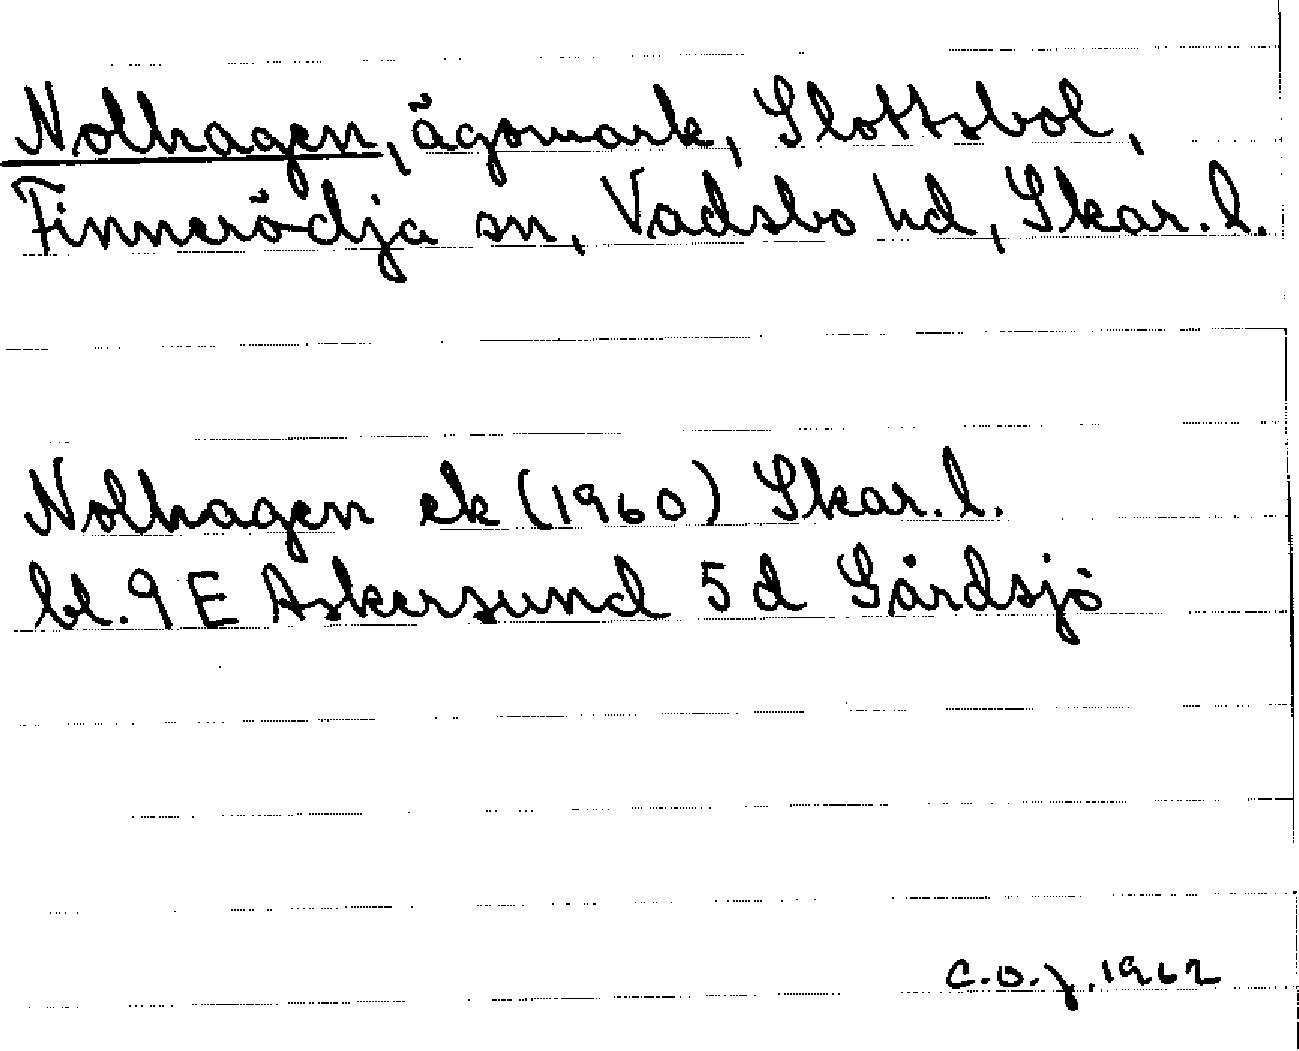 Nolhagen, ägomark, Slottsbol,
Finnerödja sn, Vadsbo hd, Skar. l.
Nolhagen ek (1960) Skar. l.
bl. 9 E Askersund 5 d Gårdsjö
C.O.J. 1962